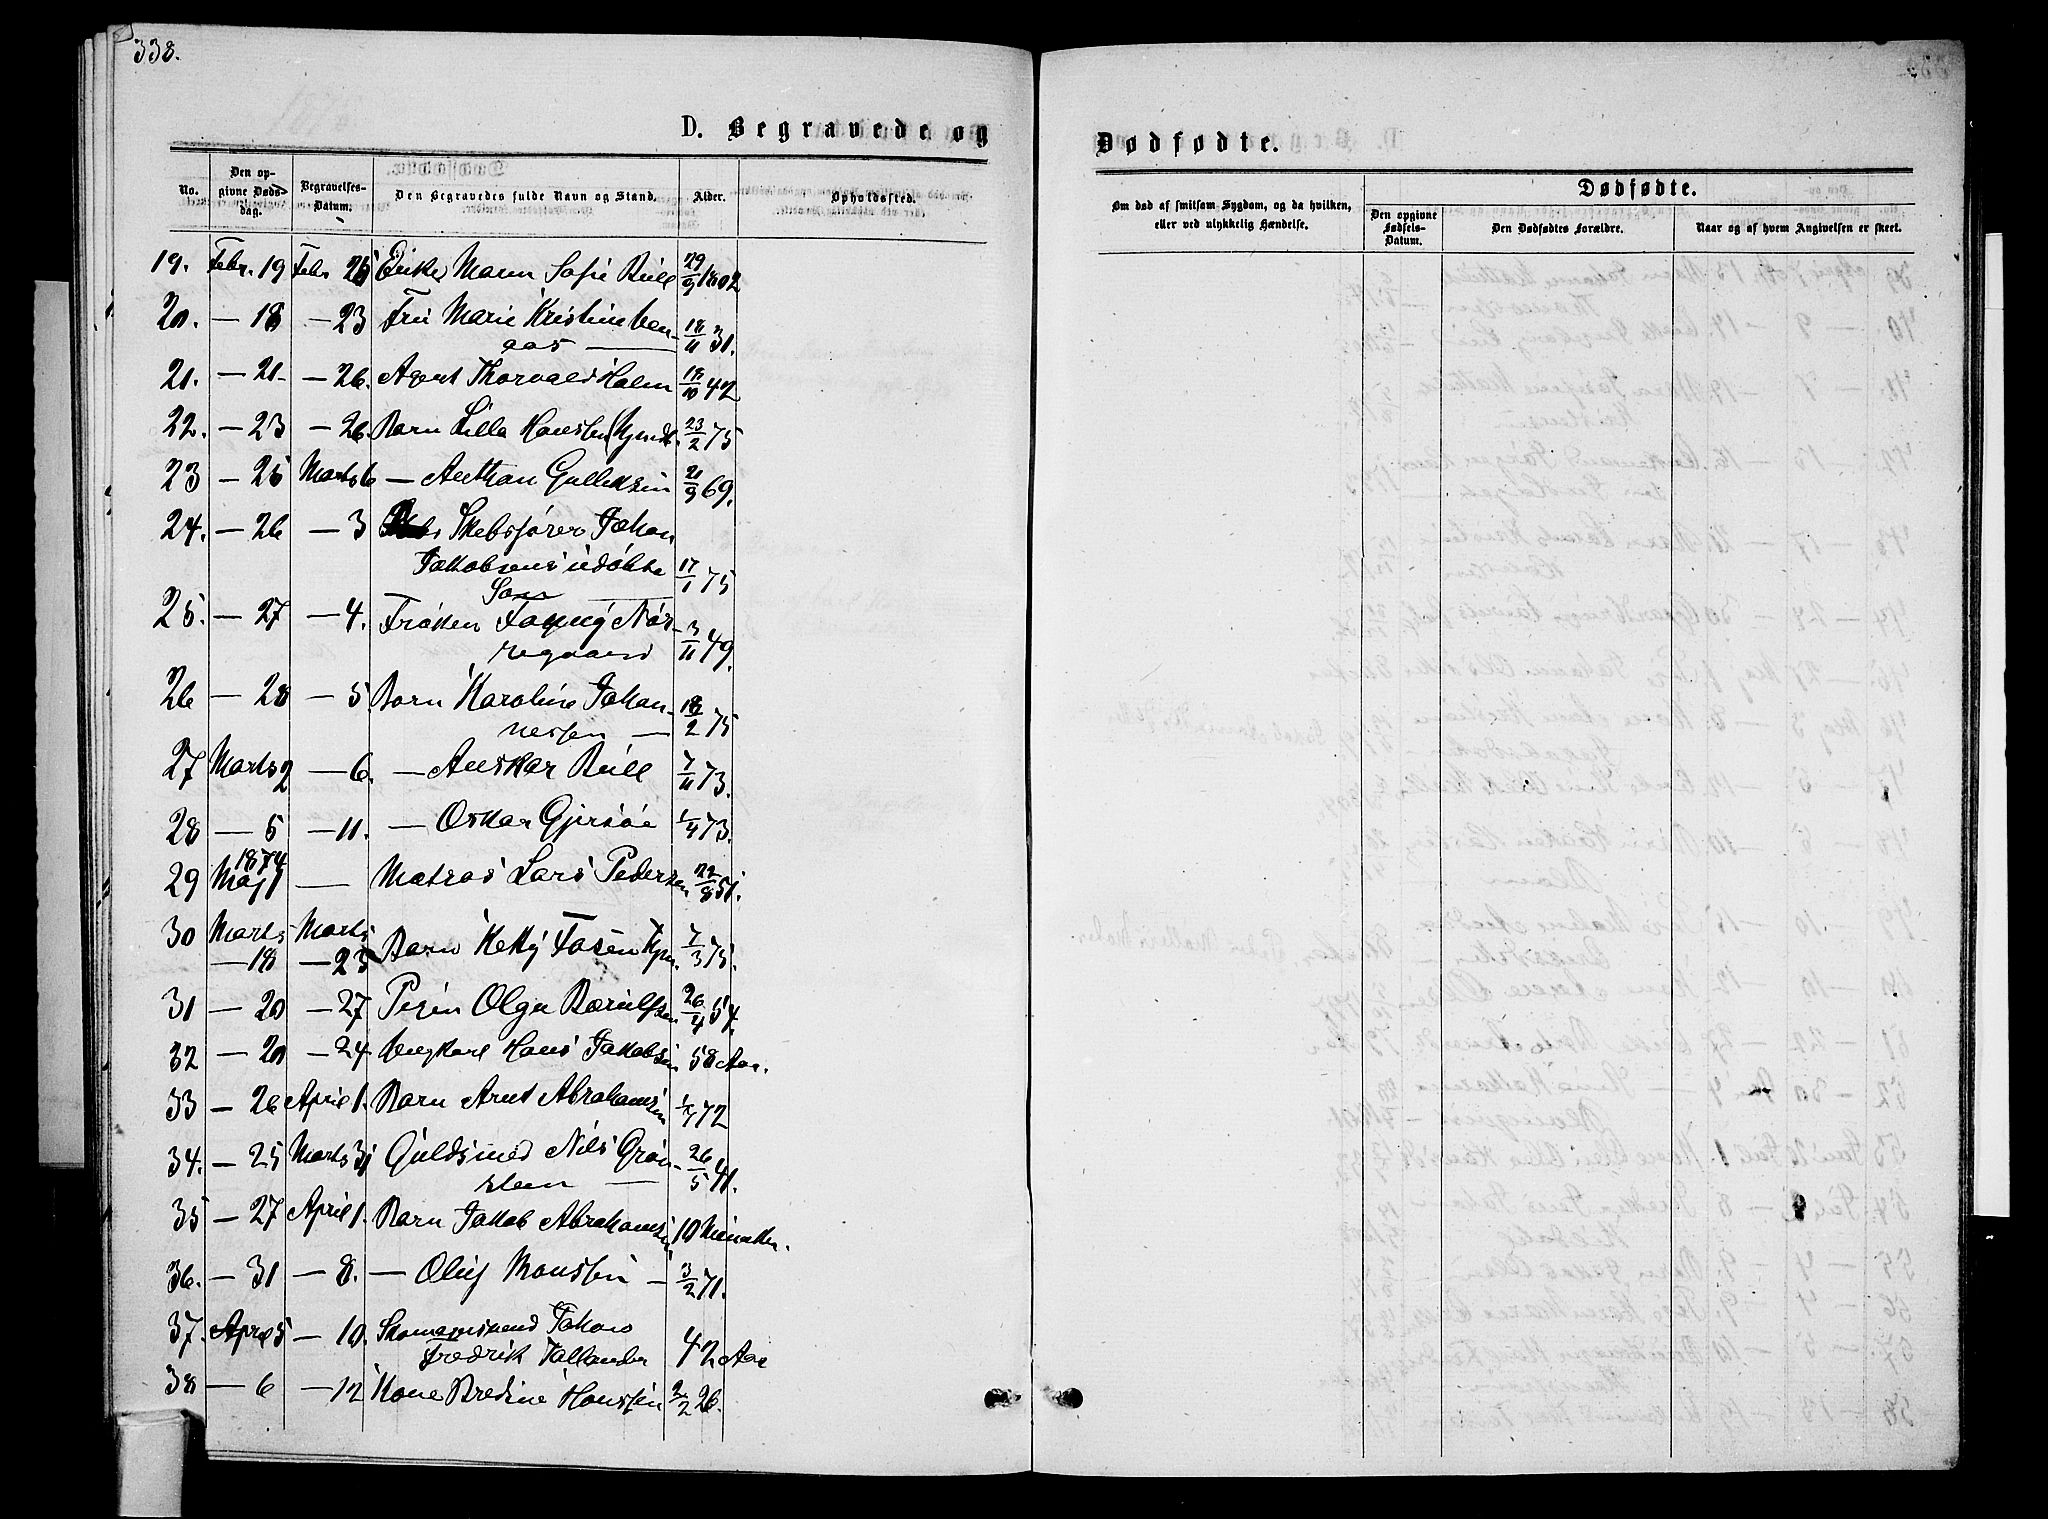 338.
D. Begravede og
No.
Den op-
givne Døds-
dag.
Begravelses-
Datum.
Den Begravedes fulde Navn og Stand.
Alder.
Opholdssted.
19. Febr. 19 Febr 25 Enke Maren Sofie Bull 29/9 1802
20. — 18 — 23 Fru Marie Kristine Ven-
aas — 18/11 31.
21. — 21 — 26. Agent Thorvald Holm 18/10 42
22. — 23 — 26. Barn Lilla Hanssen 23/2 75
23 — 25 Marts 6 — Anthon Gulliksen 21/9 69.
24. — 26 — 3 Skibsfører Johan
Jakobsens udøbte 17/1 75
Søn
25. — 27 — 4. Frøken Fanny Nør-
regaard 3/11 49.
26 — 28 — 5 Barn Karoline Johan-
nessen — 18/2 75
27 Marts 2 — 6. — Anskar Bull 7/11 73.
28 — 5 — 11. — Oskar Gjersøe 1/4 73.
1874
29 Maj 1 — Matros Lars Pedersen 22/8 51.
30 Marts Marts
— 18 — 23 Barn Ketty Fosen 7/3 75.
31 — 20 — 27 Olga 26/4 54.
32 — 20 — 24 Ungkarl Hans Jakobsen 58 Aar.
33 — 26 April 1. Barn Arnt Abrahamsen 72
34. — 25 Marts 31 Guldsmed Nils Grøn-
sten — 26/5 41.
35 — 27 April 1. Barn Jakob Abrahamsen 10 Maaneder.
36. — 31 — 8. — Oluf Monssen — 3/2 71.
37. April 5 — 10. Skomagersvend Johan
Fredrik Tallander 42 Aar
38 — 6 — 12 Kone Bredine Hanssen 2/2 26.
Dødfødte.
Om død af smitsom Sygdom, og da hvilken,
eller ved ulykkelig Hændelse.
Dødfødte.
Den opgivne
Fødsels-
Datum.
Den Dødfødtes Forældre.
Naar og af hvem Angivelsen er skeet.